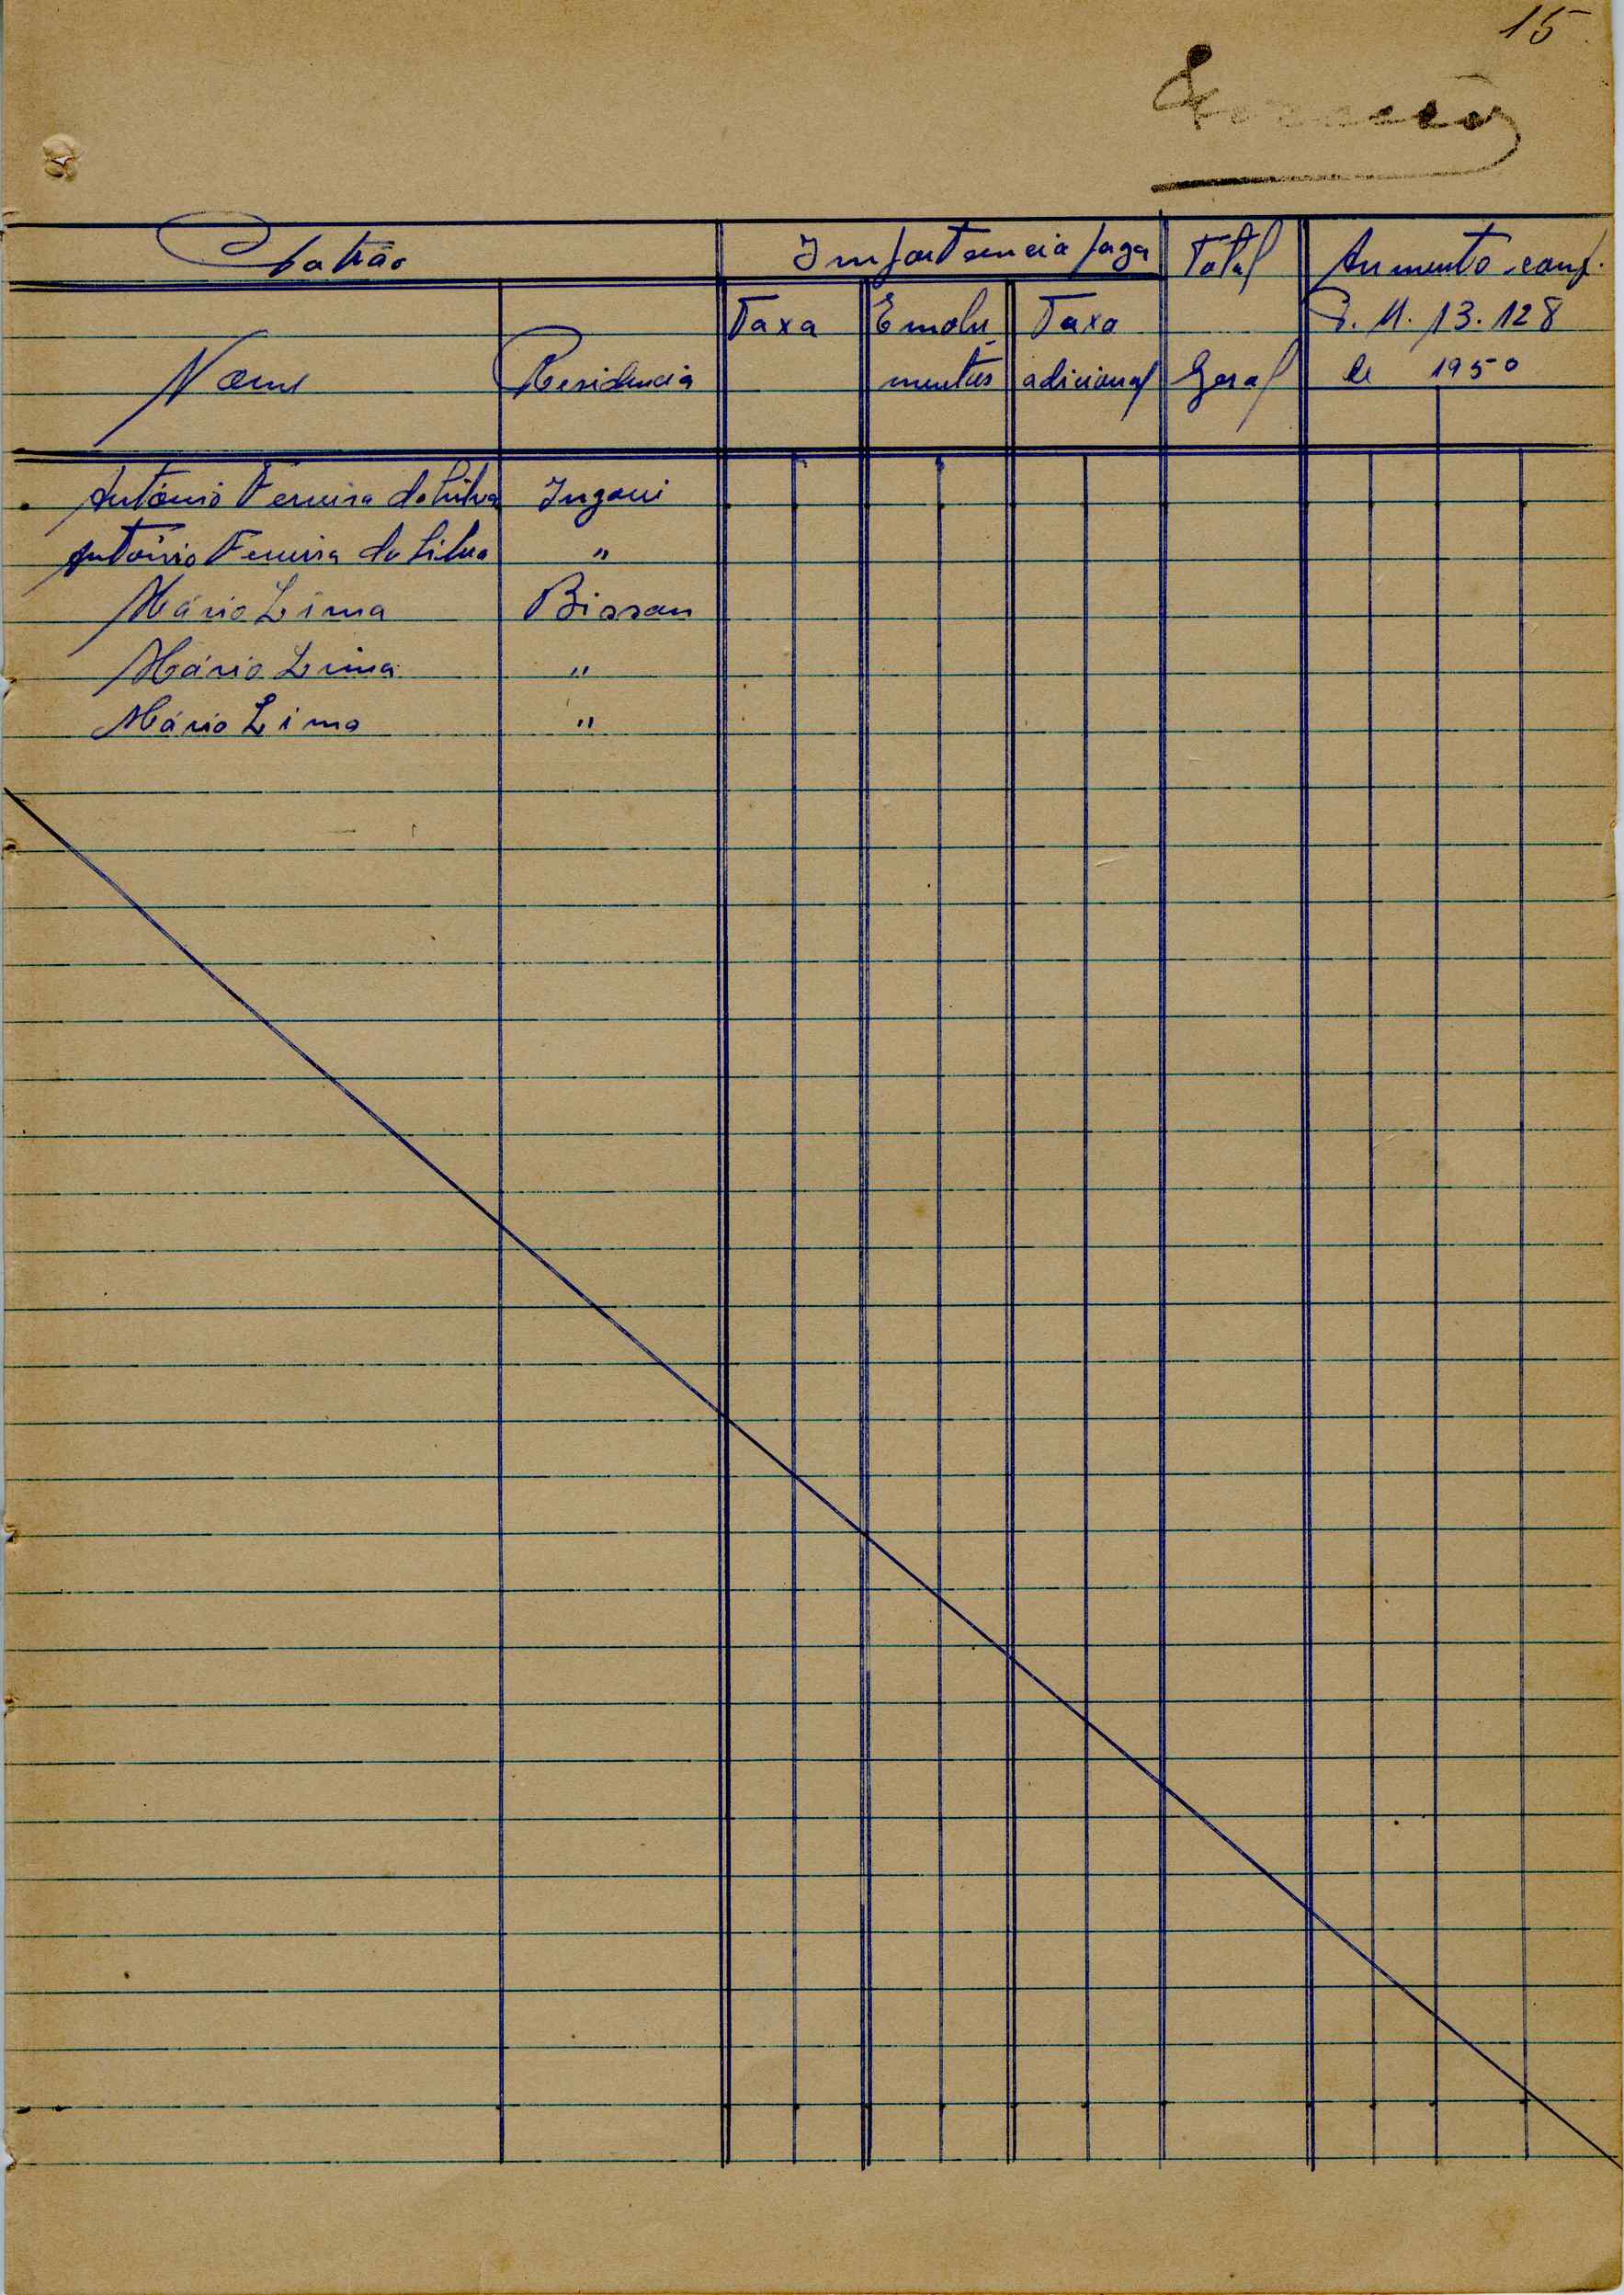 15
Patrão Importancia paga Total Aumento conf.
Taxa Emolu Taxa P. M. 13.128
Nome Residencia mentos adicional Geral de 1950
António Ferreira da Silva Ingoré
António Ferreira da Silva "
Mário Lima Bissau
Mário Lima "
Mário Lima "